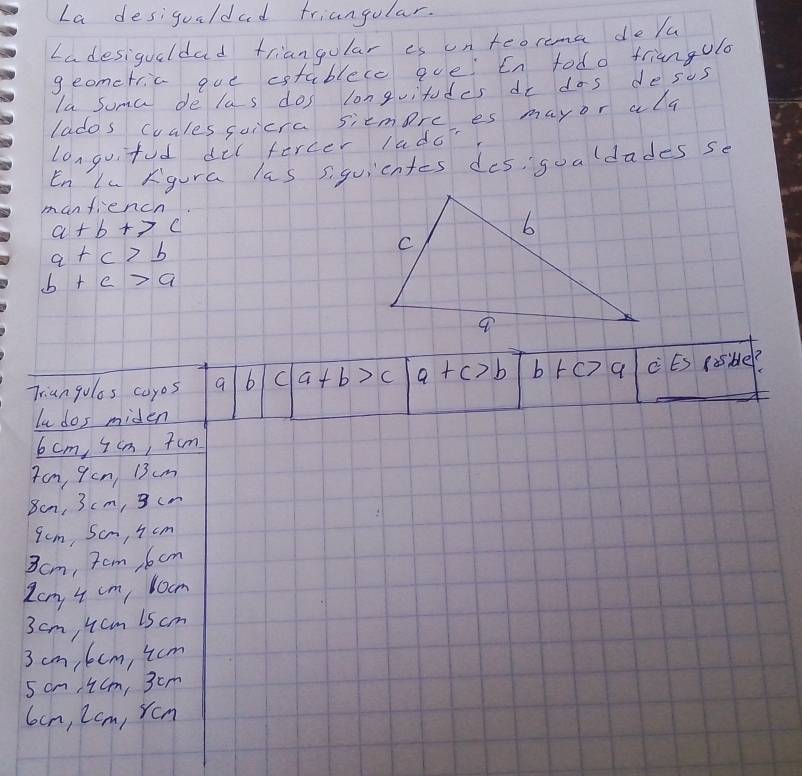 La desigualdad triangular.
La desigualdad triangular es un teorema de la
geometria que establece que: En todo triangulo
la suma de las dos longuitudes de dos de sus
lados cualesquiera siempre es mayor a la
longuitud del tercer lado".
En la figura las siguientes desigualdades se
mantienen.
a + b + > c
a + c > b
b + c > a
c
b
a
Triangulos cuyos a b c a + b > c a + c > b b + c > a ¿Es posible?
lados miden
6cm, 4cm, 7cm
7cm, 9cm, 13cm
8cm, 3cm, 3cm
9cm, 5cm, 4cm
3cm, 7cm, 6cm
2cm, 4cm, 10cm
3cm, 4cm 15cm
3cm, 6cm, 4cm
5cm, 4cm, 3cm
6cm, 2cm, 8cm